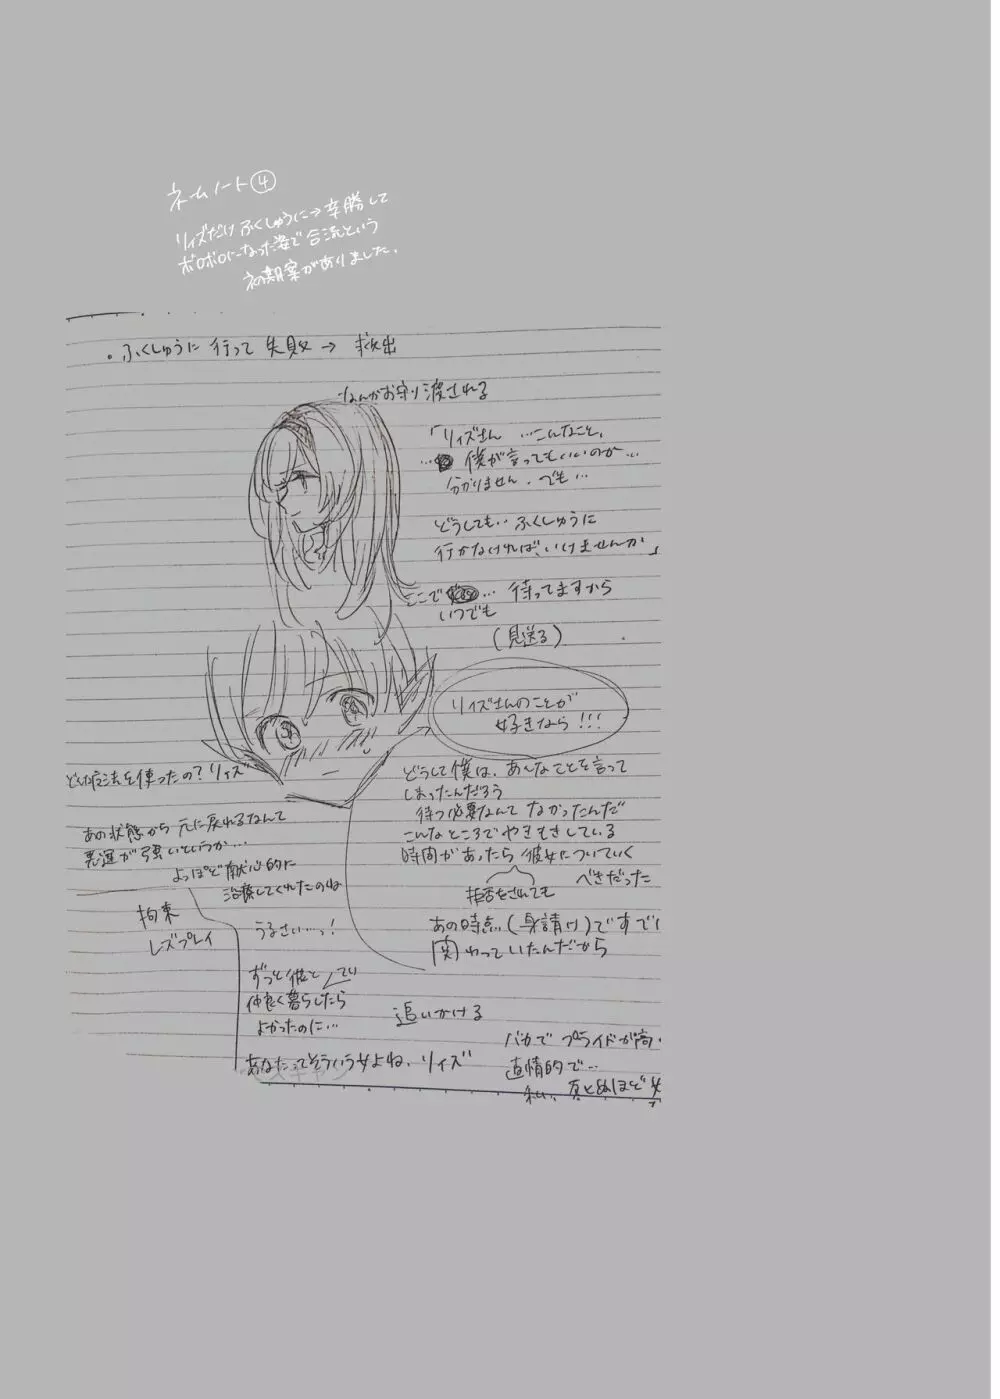 ネームノート④
リィズだけふくしゅうに→辛勝して
ボロボロになった姿で合流という
初期案がありました。
・ふくしゅうに行って失敗→救出
なんかお守り渡される
「リィズさん…こんなこと、
…僕が言ってもいいのか…
分かりません。でも…
どうしても…ふくしゅうに
行かなければ、いけませんか」
ここで…待ってますから
いつでも
(見送る)
リィズさんのことが
好きなら!!!
どんな方法を使ったの?リィズ
どうして僕は、あんなことを言って
しまったんだろう
待つ必要なんてなかったんだ
こんなところでやきもきしている
時間があったら彼女についていく
べきだった
拒否をされても
あの時点(身請け)ですで
関わっていたんだから
あの状態から元に戻れるなんて
悪運が強いというか…
よっぽど献心的に
治療してくれたのね
拘束
レズプレイ
うるさい…っ!
ずっと彼と
仲良く暮らしたら
よかったのに…
追いかける
あなたってそういう女よね、リィズ
バカでプライドが高
直情的で…